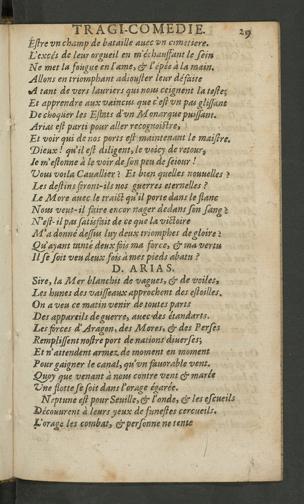 TRAGI-COMEDIE. 29
Estre vn champ de bataille auec vn cimetiere.
L'excés de leur orgueil en m'échauffant le sein
Ne met la fougue en l'ame, & l'épée à la main.
Allons en triomphant adiouster leur défaite
A tant de vers lauriers qui nous ceignent la teste;
Et apprendre aux vaincus que c'est vn pas glissant
De choquer les Estats d'vn Monarque puissant.
Arias est parti pour aller recognoistre,
Et voir qui de nos ports est maintenant le maistre.
Dieux! qu'il est diligent, le voicy de retour,
Ie m'estonne à le voir de son peu de seiour!
Vous voila Cauallier? Et bien quelles nouuelles?
Les destins seront-ils nos guerres eternelles?
Le More auec le traict qu'il porte dans le flanc
Nous veut-il faire encor nager dedans son sang?
N'est-il pas satisfait de ce que la victoire
M'a donné dessus luy deux triomphes de gloire?
Qu'ayant tanté deux fois ma force, & ma vertu
Il se soit veu deux fois à mes pieds abatu?
D. ARIAS.
Sire, la Mer blanchit de vagues, & de voiles,
Les hunes des vaisseaux approchent des estoilles.
On a veu ce matin venir de toutes parts
Des appareils de guerre, auec des étandarts.
Les forces d'Aragon, des Mores, & des Perses
Remplissent nostre port de nations diuerses;
Et n'attendent armez, de moment en moment
Pour gaigner le canal, qu'vn fauorable vent.
Quoy que venant à nous contre vent & marée
Vne flotte se soit dans l'orage égarée.
Neptune est pour Seuille, & l'onde, & les escueils
Découurent à leurs yeux de funestes cercueils.
L'orage les combat, & personne ne tente